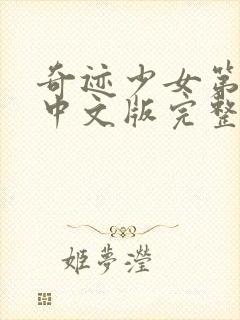 奇迹少女第
中文版完整
姬夢瀅